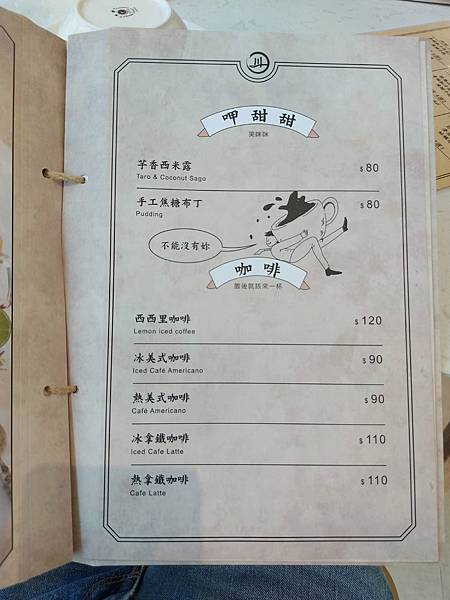 川
呷甜甜
笑咪咪
芋香西米露 $80
Taro & Coconut Sago
手工焦糖布丁 $80
Pudding
不能沒有妳
咖啡
飯後就該來一杯
西西里咖啡 $120
Lemon iced coffee
冰美式咖啡 $90
Iced Café Americano
熱美式咖啡 $90
Café Americano
冰拿鐵咖啡 $110
Iced Cafe Latte
熱拿鐵咖啡 $110
Cafe Latte